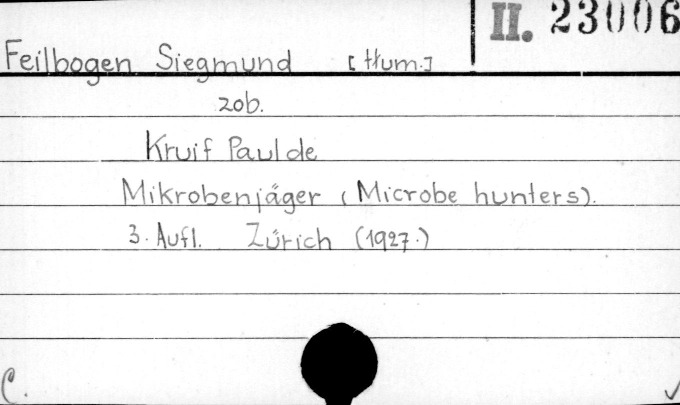 II. 23006
Feilbogen Siegmund [tłum.]
zob.
Kruif Paul de
Mikrobenjäger (Microbe hunters).
3. Aufl. Zürich (1927.)
C.